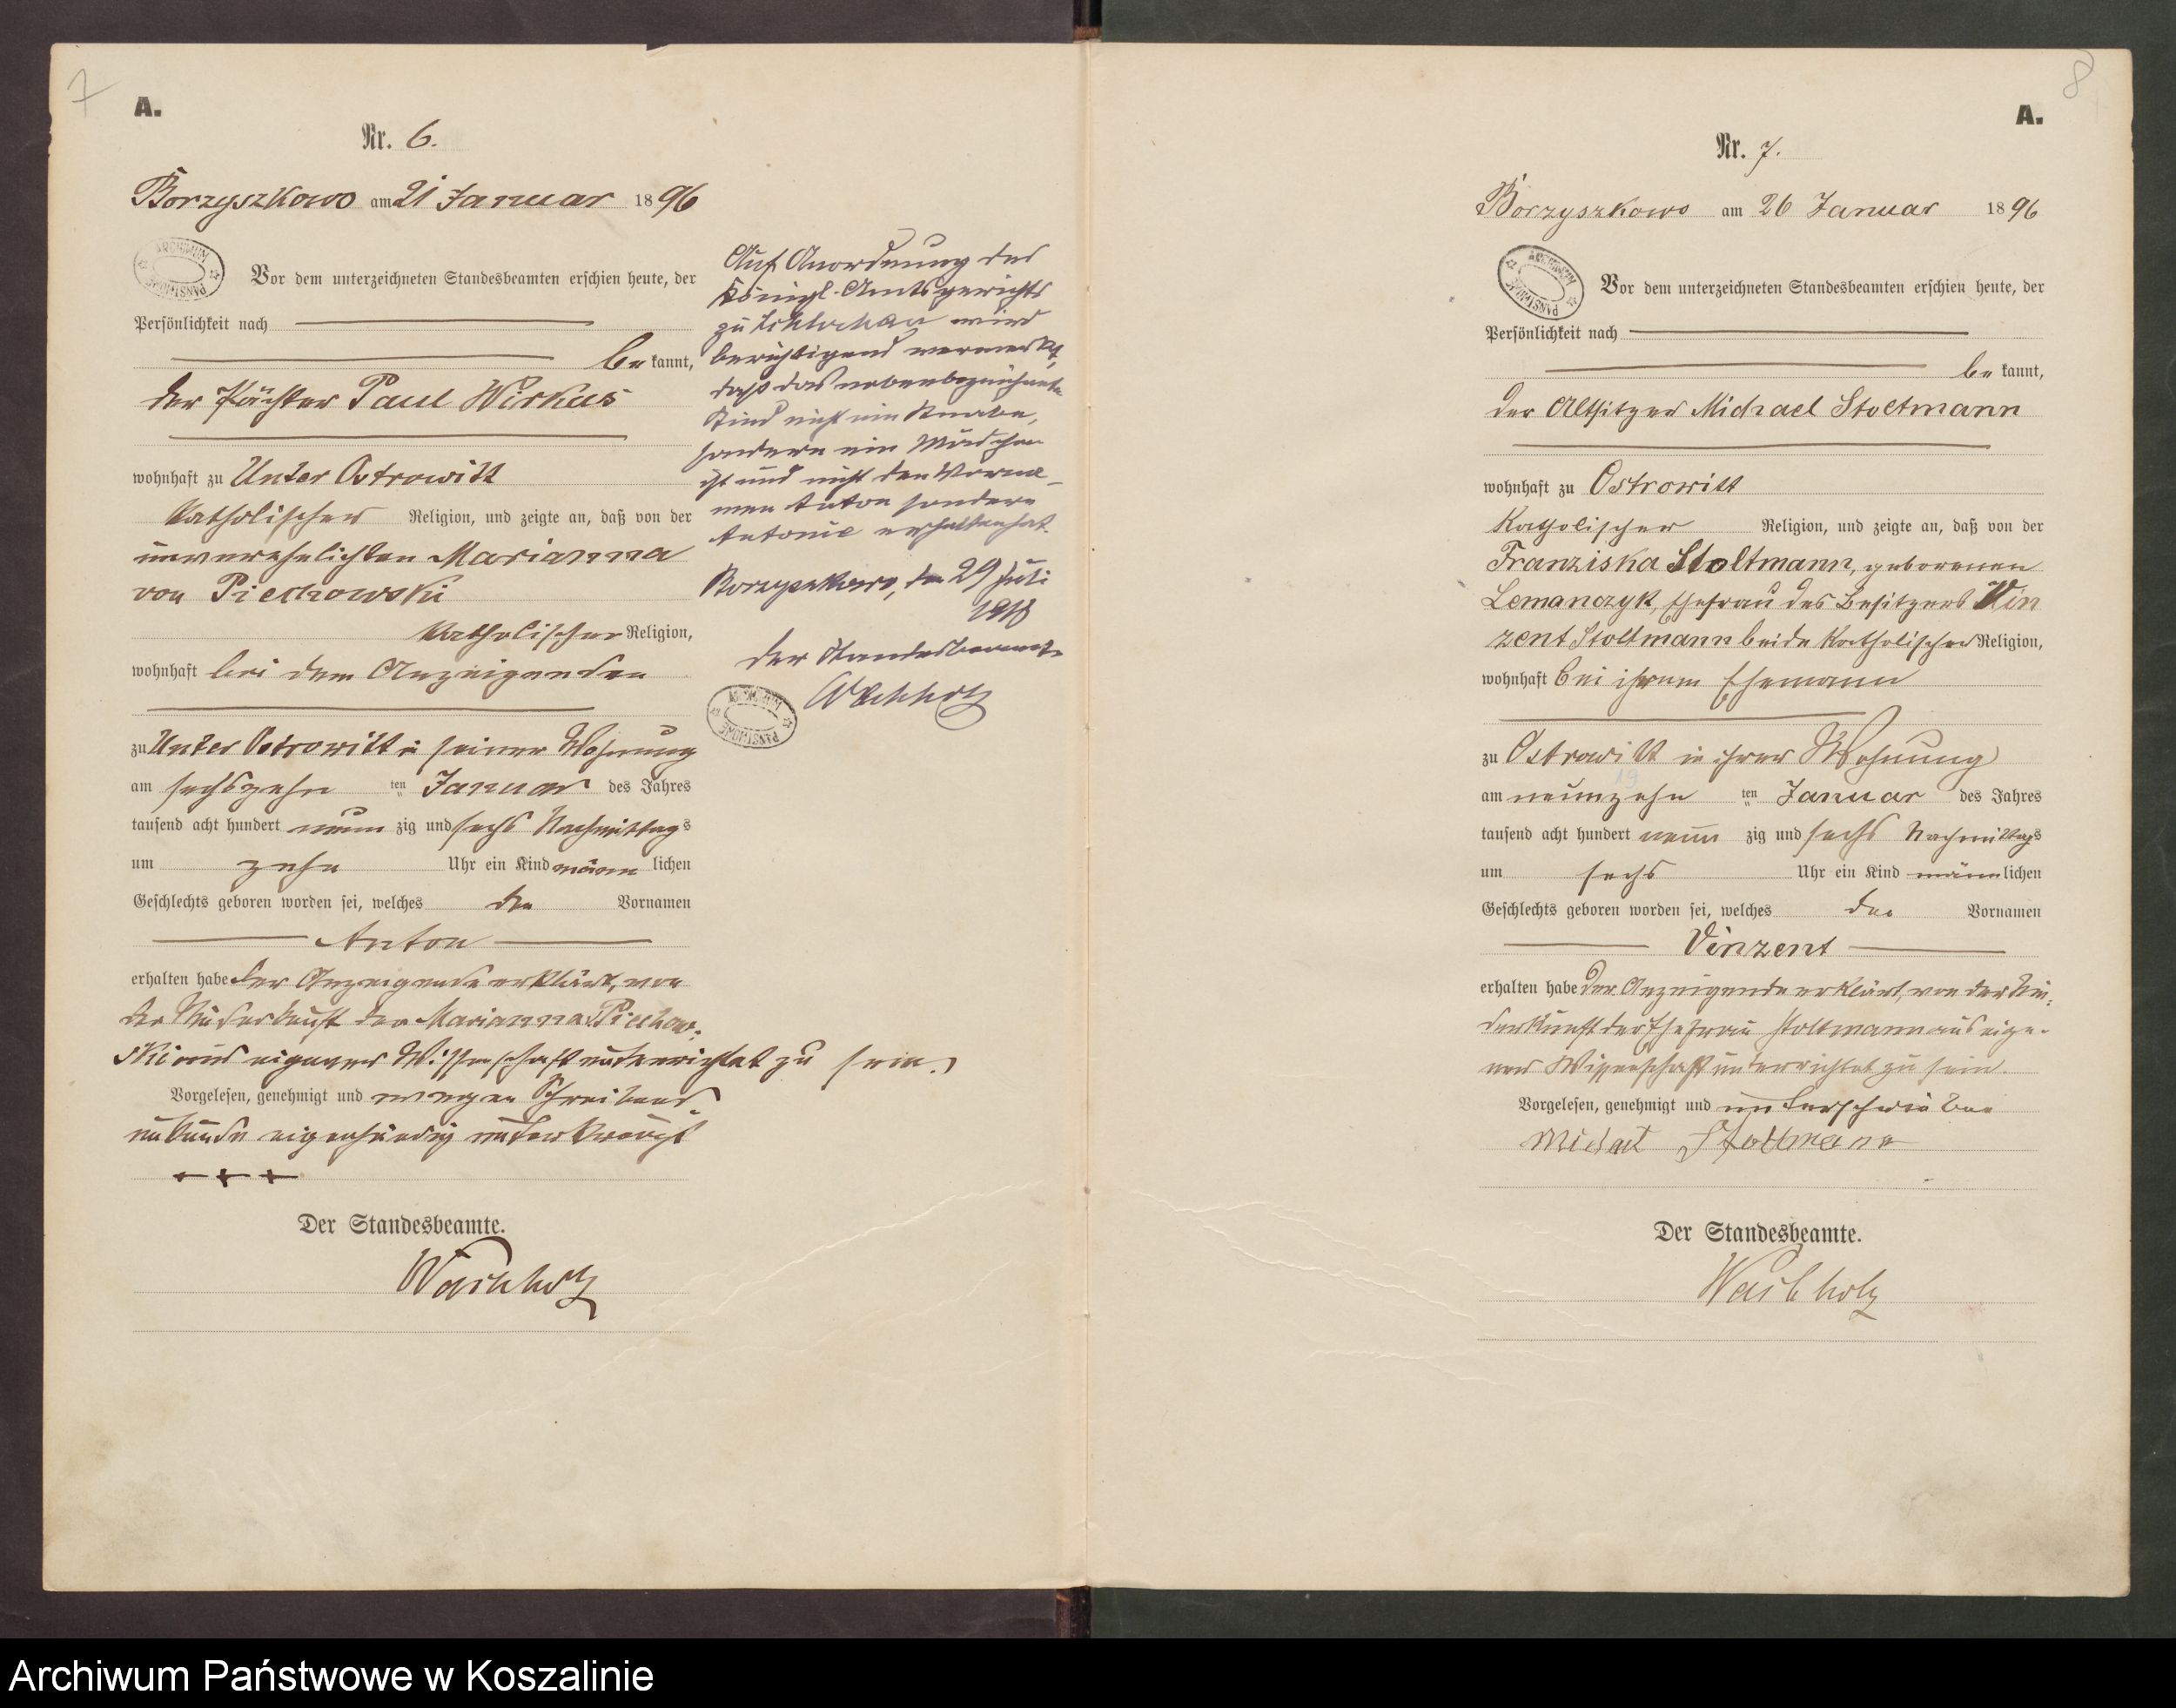 7
A.
Nr. 6.
Borzyszkowo am 21 Januar 1896
ARCHIWUM PAŃSTWOWE
Vor dem unterzeichneten Standesbeamten erschien heute, der
Persönlichkeit nach
be kannt,
der Pächter Paul Wirkus
wohnhaft zu Unter Ostrowitt
katholischer Religion, und zeigte an, daß von der
unverehelichten Marianna
von Piechowski
katholischer Religion,
wohnhaft bei dem Anzeigenden
zu Unter Ostrowitt in seiner Wohnung
am sechszehn ten Januar des Jahres
tausend acht hundert neun zig und sechs Nachmittags
um zehn Uhr ein Kind männ lichen
Geschlechts geboren worden sei, welches den Vornamen
Anton
erhalten habe der Anzeigende erklärt, von
der Niederkunft der Marianna v. Piechow-
ski aus eigener Wissenschaft unterrichtet zu sein.
Vorgelesen, genehmigt und wegen Schreibens-
unkunde eigenhändig unterkreuzt
+ + +
Der Standesbeamte.
Waschholz
Auf Anordnung des
Königl. Amtsgerichts
zu Schlochau wird
berichtigend vermerkt,
daß das nebenbezeichnete
Kind nicht ein Knabe,
sondern ein Mädchen
ist und nicht den Vorna-
men Anton sondern
Antonie erhalten hat.
Borzyszkowo, den 29 Juli
1918
Der Standesbeamte
ARCHIWUM PAŃSTWOWE
8
A.
Nr. 7.
Borzyszkowo am 26 Januar 1896
ARCHIWUM PAŃSTWOWE
Vor dem unterzeichneten Standesbeamten erschien heute, der
Persönlichkeit nach
be kannt,
der Altsitzer Michael Stoltmann
wohnhaft zu Ostrowitt
katholischer Religion, und zeigte an, daß von der
Franziska Stoltmann, geborenen
Lemanczyk, Ehefrau des Besitzers Vin
zent Stoltmann beide katholischer Religion,
wohnhaft bei ihrem Ehemann
zu Ostrowitt in ihrer Wohnung
19
am neunzehn ten Januar des Jahres
tausend acht hundert neun zig und sechs Nachmittags
um sechs Uhr ein Kind männ lichen
Geschlechts geboren worden sei, welches den Vornamen
Vinzent
erhalten habe der Anzeigende erklärt, von der Nie-
derkunft der Ehefrau Stoltmann aus eige-
ner Wissenschaft unterrichtet zu sein.
Vorgelesen, genehmigt und unterschrieben
Michael Stoltmann
Der Standesbeamte.
Archiwum Państwowe w Koszalinie